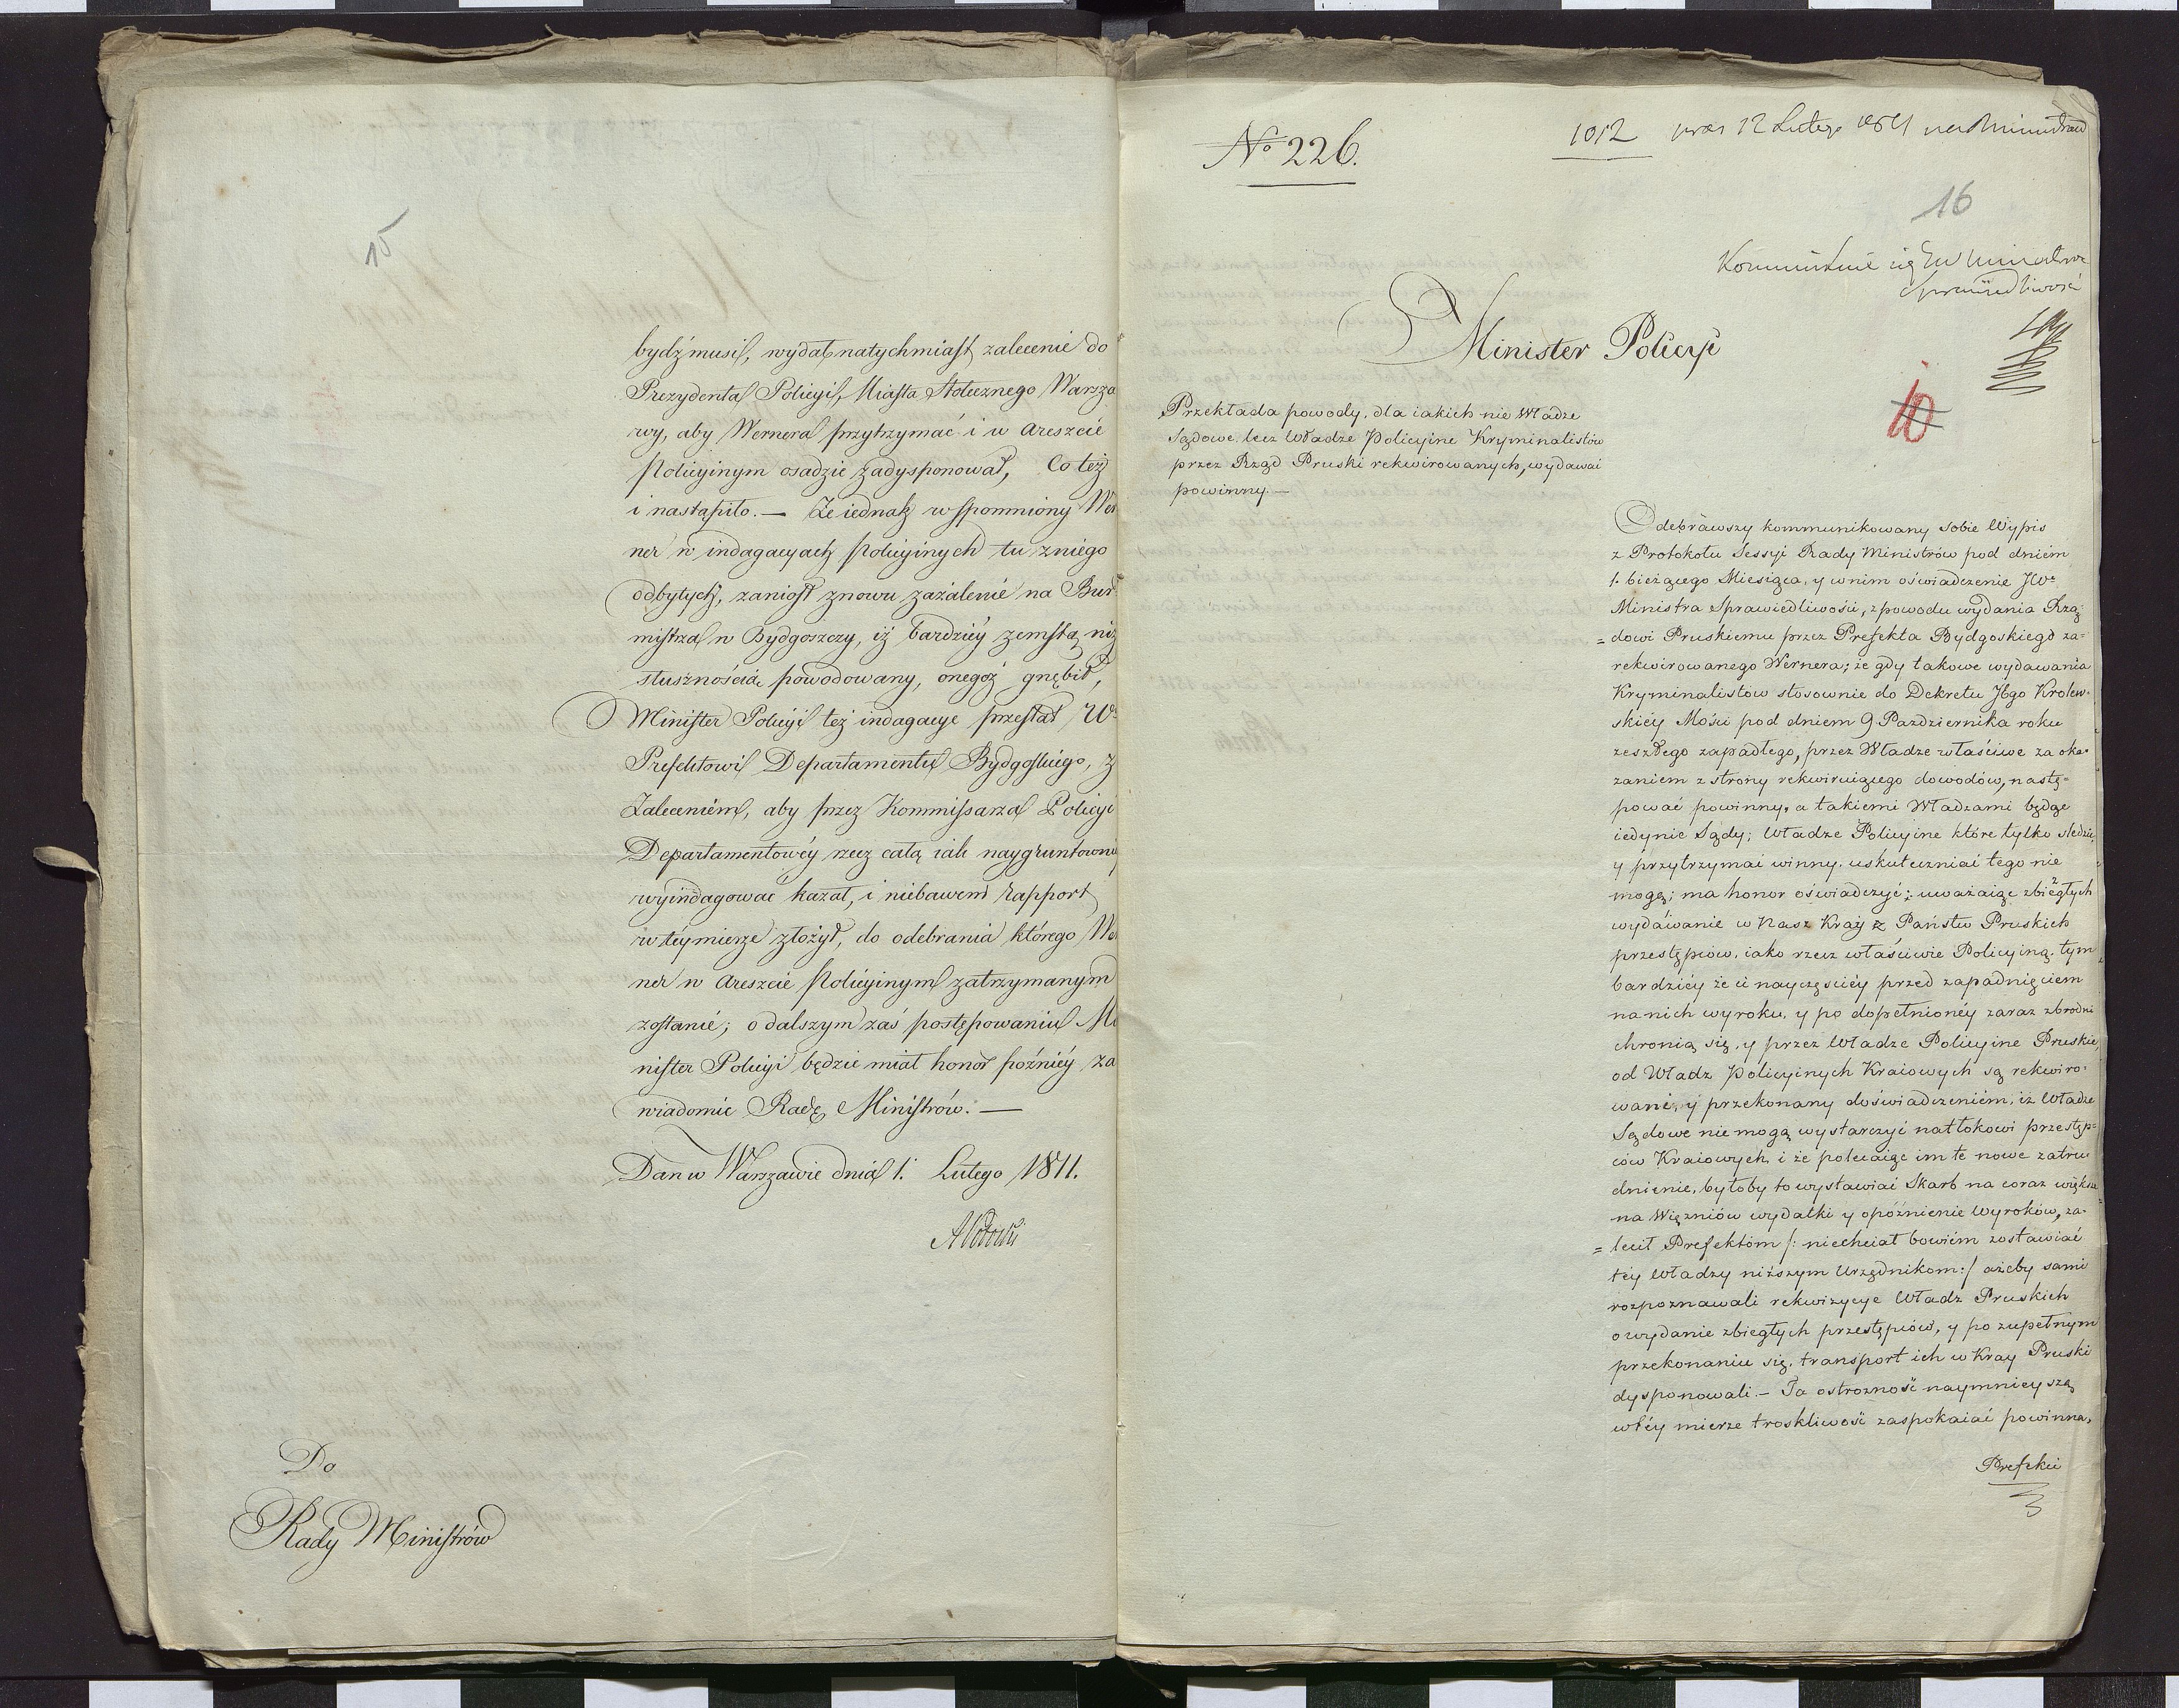 15
bydź musi, wydał natychmiast zalecenie do
Prezydenta Policyi, Miasta Stołecznego Warsza
wy, aby Wernera przytrzymać i w Areszcie
Policyinym osadzić zadysponował, Co też
i nastąpiło. — Że iednak wspomniony Wer
ner w indagacyach Policyinych tu z niego
odbytych, zaniosł znowu zażalenie na Bur
mistrza w Bydgoszczy, iż bardziéy zemstą niż
słusznością powodowany, onegóż gnębił,
Minister Policyi też indagacye przesłał W.
Prefektowi Departamentu Bydgoskiego, z
Zaleceniem, aby przez Kommissarza Policyi
Departamentowéy rzecz całą iak naygruntowniéy
wyindagować kazał, i niebawem Rapport
w téy mierze złożył, do odebrania którego Wer
ner w Areszcie Policyinym zatrzymanym
zostanie; o dalszym zaś postępowaniu Mi
nister Policyi będzie miał honor poźniéy za
wiadomić Radę Ministrów. —
Dan w Warszawie dnia 1. Lutego 1811.
Do
Rady Ministrów
No 226.
1012 præs 12 Lutego 1811
16
Kommunikuie się
Sprawiedliwości
Minister Policyi
10
Przekłada powody, dla iakich nie Władze
Sądowe, lecz Władze Policyine Kryminalistów
przez Rząd Pruski rekwirowanych, wydawać
powinny. —
Odebrawszy kommunikowany sobie Wypis
z Protokołu Sessyi Rady Ministrów pod dniem
1. bieżącego Miesiąca, y w nim oświadczenie JW.
Ministra Sprawiedliwości, z powodu wydania Rzą=
=dowi Pruskiemu przez Prefekta Bydgoskiego za=
rekwirowanego Wernera; że gdy takowe wydawania
Kryminalistów stosownie do Dekretu Jego Krolew=
skiéy Mości pod dniem 9 Pazdziernika roku
zeszłego zapadłego, przez Władze właściwe za oka=
zaniem z strony rekwiruiącego dowodów, nastę=
pować powinny, a takiemi Władzami będąc
iedynie Sądy; Władze Policyine które tylko sledzić,
y przytrzymać winny, uskuteczniać tego nie
mogą; ma honor oświadczyć; uważaiąc zbiegłych
wydáwanie w Nasz Kray z Państw Pruskich
przestępców, iako rzecz właściwie Policyiną, tym
bardziéy że ci nayczęściéy przed zapadnięciem
na nich wyroku, y po dopełnionéy zaraz zbrodni
chronią się, y przez Władze Policyine Pruskie,
od Władz Policyinych Kraiowych są rekwiro=
wani, y przekonany doświadczeniem, iż Władze
Sądowe nie mogą wystarczyć natłokowi przestęp=
ców Kraiowych, i że polecaiąc im te nowe zatru
dnienie, byłoby to wystawiać Skarb na coraz większe
na Więzniów wydatki y opóźnienie Wyroków, za=
=lecił Prefektóm /: niechciał bowiém zostawiać
téy Władzy niższym Urzędnikom :/ ażeby sami
rozpoznawali rekwizycye Władz Pruskich
o wydanie zbiegłych przestępców, y po zupełnym
przekonaniu się, transport ich w Kray Pruski
dysponowali. — Ta ostrozność naymnieyszą
w téy mierze troskliwość zaspokaiać powinna,
Prefekci